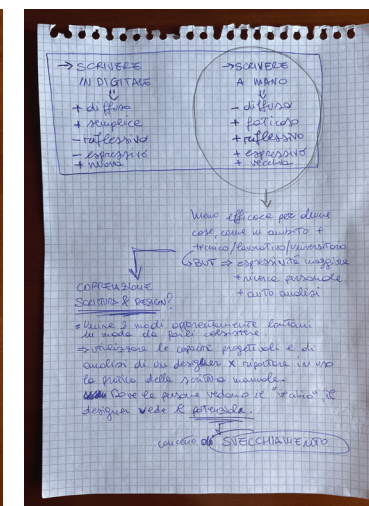 → SCRIVERE
IN DIGITALE
+ diffuso
+ semplice
- riflessivo
- espressivo
+ nuova
→ SCRIVERE
A MANO
- diffuso
+ faticoso
+ riflessivo
+ espressivo
+ vecchia
Meno efficace per alcune
cose, come in ambito +
tecnico/lavorativo/universitario
BUT ⇒ espressività maggiore
+ ricerca personale
+ auto analisi
CONNESSIONE
SCRITTURA & DESIGN?
= Unire 2 modi apparentemente lontani
in modo da farli coesistere
⇒ utilizzare le capacità progettuali e di
analisi di un designer x riportare in uso
la pratica della scrittura manuale.
Dove le persone vedono il "vecchio", il
designer vede il potenziale.
concetto di SVECCHIAMENTO